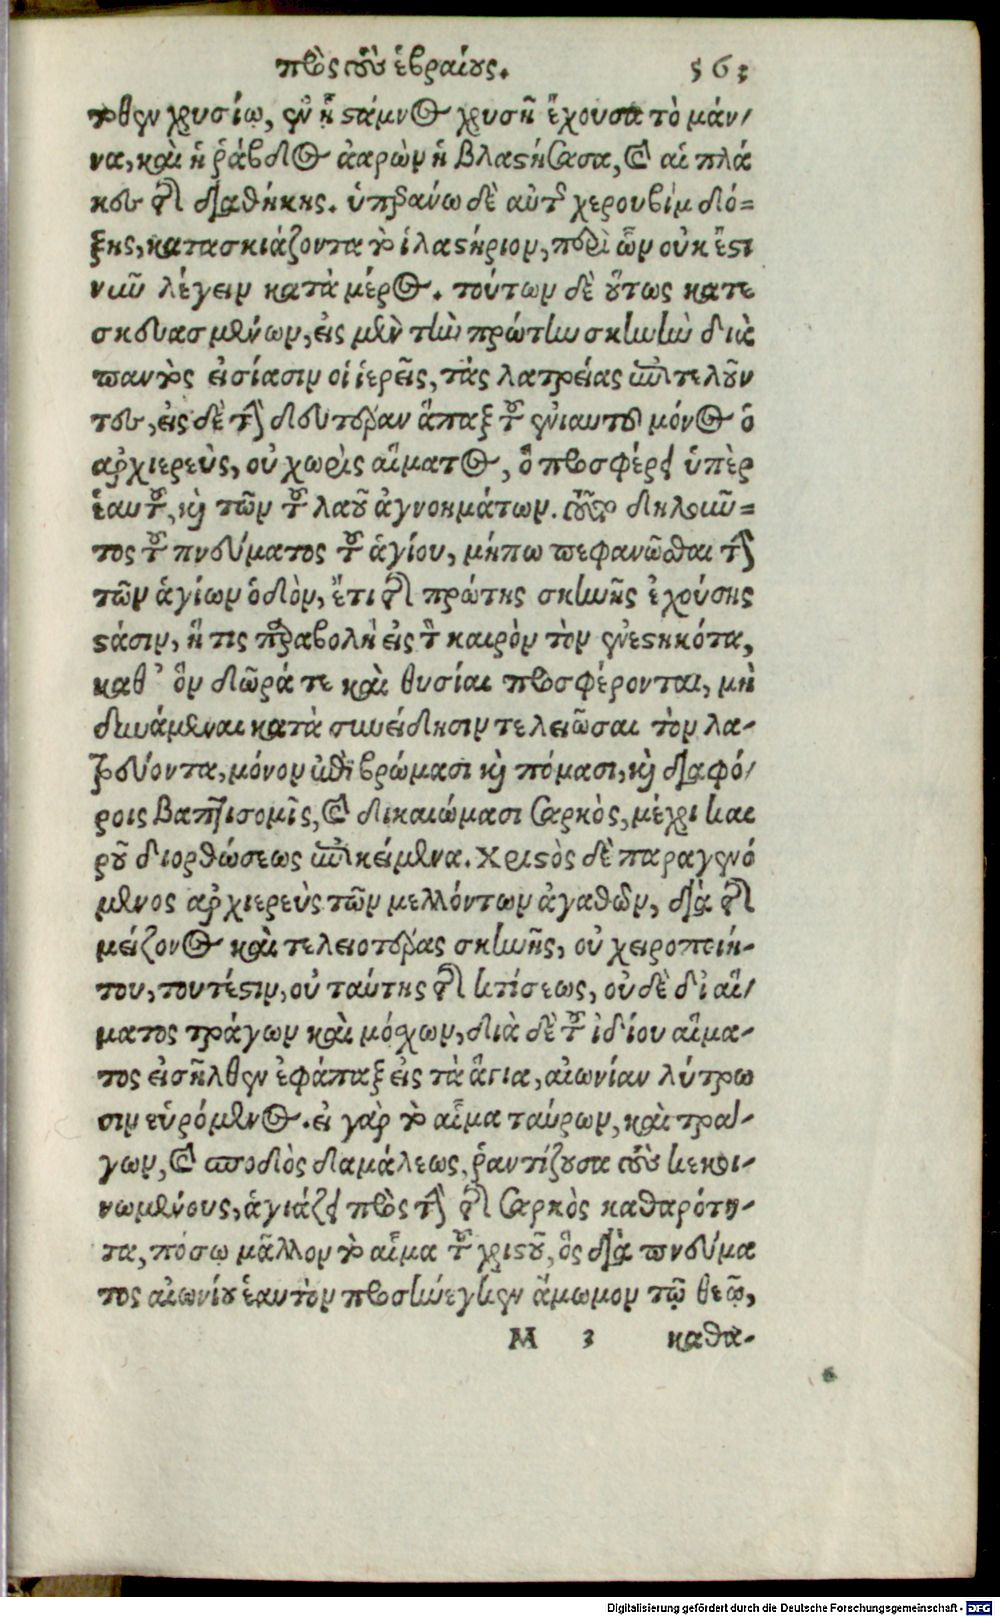 πρὸς τοὺς ἑβραίους. 563
τοθεν χρυσίῳ, ἐν ᾗ στάμνος χρυσῆ ἔχουσα τὸ μάν/
να, καὶ ἡ ῥάβδος ἀαρὼν ἡ βλαστήσασα, καὶ αἱ πλά
κες τῆς διαθήκης. ὑπεράνω δὲ αὐτῆς χερουβὶμ δό=
ξης, κατασκιάζοντα τὸ ἱλαστήριον, περὶ ὧν οὐκ ἔστι
νῦν λέγειν κατὰ μέρος. τούτων δὲ οὕτως κατε
σκευασμένων, εἰς μὲν τὴν πρώτην σκηνὴν διὰ
παντὸς εἰσίασιν οἱ ἱερεῖς, τὰς λατρείας ἐπιτελοῦν
τες, εἰς δὲ τὴν δευτέραν ἅπαξ τοῦ ἐνιαυτοῦ μόνος ὁ
ἀρχιερεὺς, οὐ χωρὶς αἵματος, ὃ προσφέρει ὑπὲρ
ἑαυτοῦ, καὶ τῶν τοῦ λαοῦ ἀγνοημάτων. τοῦτο δηλοῦν=
τος τοῦ πνεύματος τοῦ ἁγίου, μήπω πεφανῶσθαι τὴν
τῶν ἁγίων ὁδὸν, ἔτι τῆς πρώτης σκηνῆς ἐχούσης
στάσιν, ἥ τις παραβολὴ εἰς τὸν καιρὸν τὸν ἐνεστηκότα,
καθ’ ὃν δῶρά τε καὶ θυσίαι προσφέρονται, μὴ
δυνάμεναι κατὰ συνείδησιν τελειῶσαι τὸν λα-
τρεύοντα, μόνον ἐπὶ βρώμασι καὶ πόμασι, καὶ διαφό/
ροις βαπτισομῖς, καὶ δικαιώμασι σαρκὸς, μέχρι και
ροῦ διορθώσεως ἐπικείμενα. Χριστὸς δὲ παραγενό
μενος ἀρχιερεὺς τῶν μελλόντων ἀγαθῶν, διὰ τῆς
μείζονος καὶ τελειοτέρας σκηνῆς, οὐ χειροποιή-
του, τουτέστιν, οὐ ταύτης τῆς κτίσεως, οὐδὲ δι’ αἵ/
ματος τράγων καὶ μόσχων, διὰ δὲ τοῦ ἰδίου αἵμα-
τος εἰσῆλθεν ἐφάπαξ εἰς τὰ ἅγια, αἰωνίαν λύτρω
σιν εὑρόμενος. εἰ γὰρ τὸ αἷμα ταύρων, καὶ τρά-
γων, καὶ σποδὸς δαμάλεως, ῥαντίζουσα τοὺς κεκοι-
νωμένους, ἁγιάζει πρὸς τὴν τῆς σαρκὸς καθαρότη-
τα, πόσῳ μᾶλλον τὸ αἷμα τοῦ χριστοῦ, ὃς διὰ πνεύμα
τος αἰωνίου ἑαυτὸν προσήνεγκεν ἄμωμον τῷ θεῷ,
M 3 καθα-
Digitalisierung gefördert durch die Deutsche Forschungsgemeinschaft - DFG